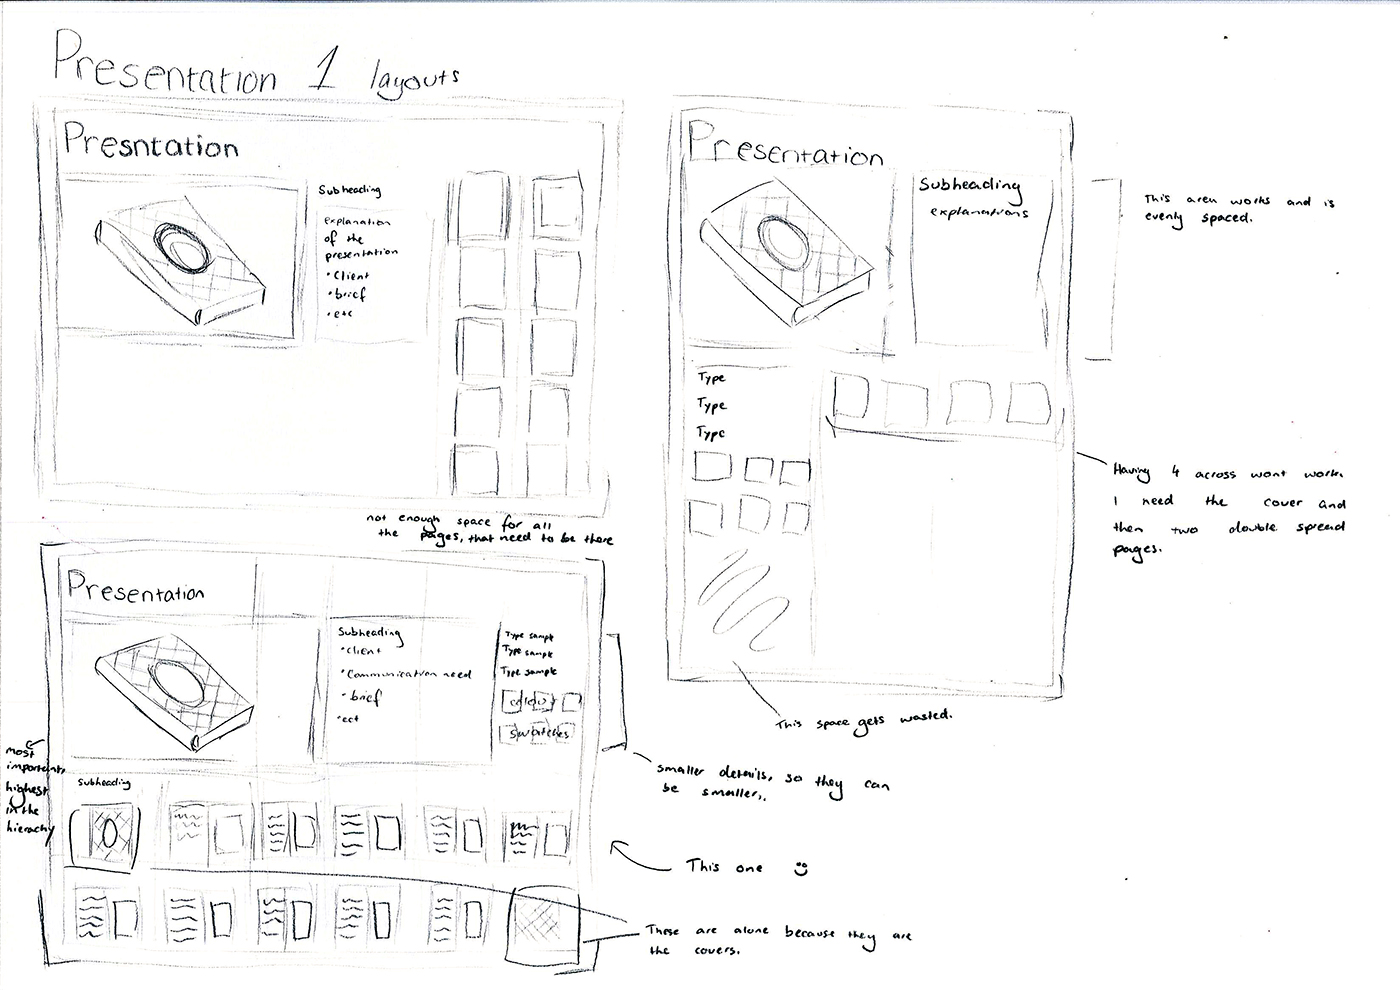 Presentation 1 layouts
Presntation
Subheading
explanation
of the
presentation
• Client
• brief
• etc
not enough space for all
the pages, that need to be there
Presentation
Subheading
explanations
This area works and is
evenly spaced.
Type
Type
Type
Having 4 across wont work.
I need the cover and
then two double spread
pages.
This space gets wasted.
Presentation
Subheading
• Client
• Communication need
• brief
• ect
Type sampl
Type sample
Type sample
colour
swatches
smaller details, so they can
be smaller,.
most
important,
highest
in the
hierachy
Subheading
This one
These are alone because they are
the covers.